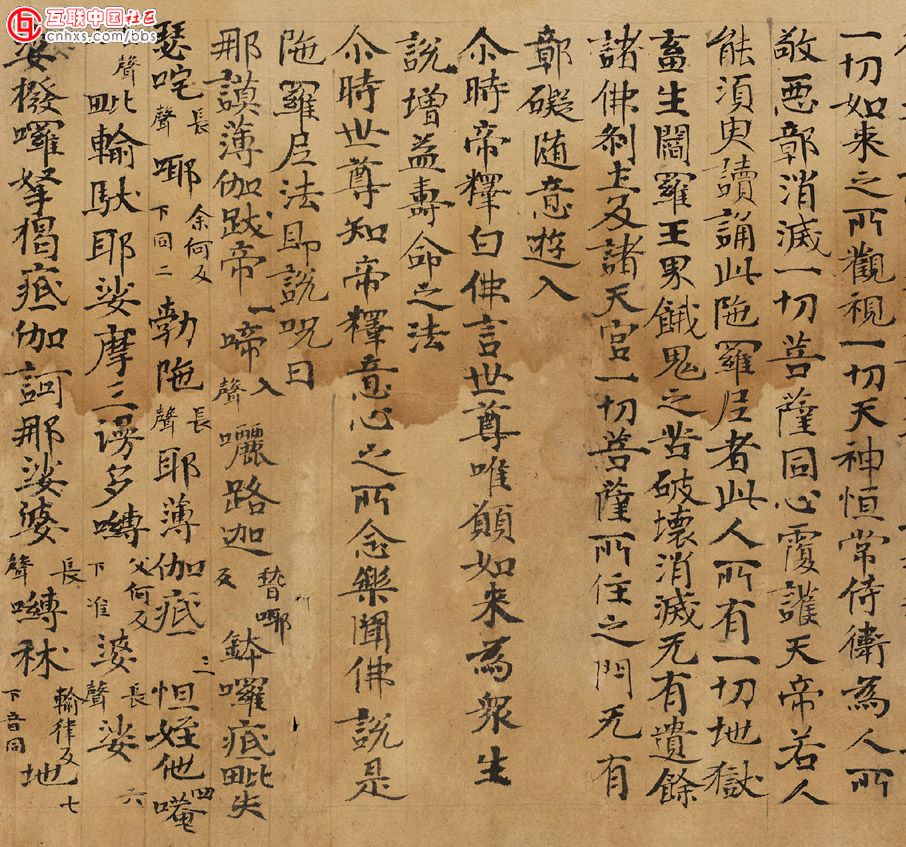 互联中国社区
cnhxs.com/bbs
一切如来之所觀視一切天神恒常侍衛為人所
敬惡鄣消滅一切菩薩同心覆護天帝若人
能須臾讀誦此陁羅尼者此人所有一切地獄
畜生閻羅王界餓鬼之苦破壞消滅无有遺餘
諸佛剎土及諸天宫一切菩薩所住之門无有
鄣礙随意遊入
尒時帝釋白佛言世尊唯願如来為衆生
說增益壽命之法
尒時世尊知帝釋意心之所念樂聞佛說是
陁羅尼法即說呪曰
那謨薄伽跋帝一啼入聲囇路迦替㖿反鉢囉疷毗失
瑟咤長聲㖿余何反下同二勃陁長聲耶薄伽疷三怛姪他四唵
聲毗輸馱耶娑摩三漫多嚩父何反下准婆長聲娑六
娑撥囉拏揭疷伽訶那娑婆長聲嚩秫輸律反下音同地七